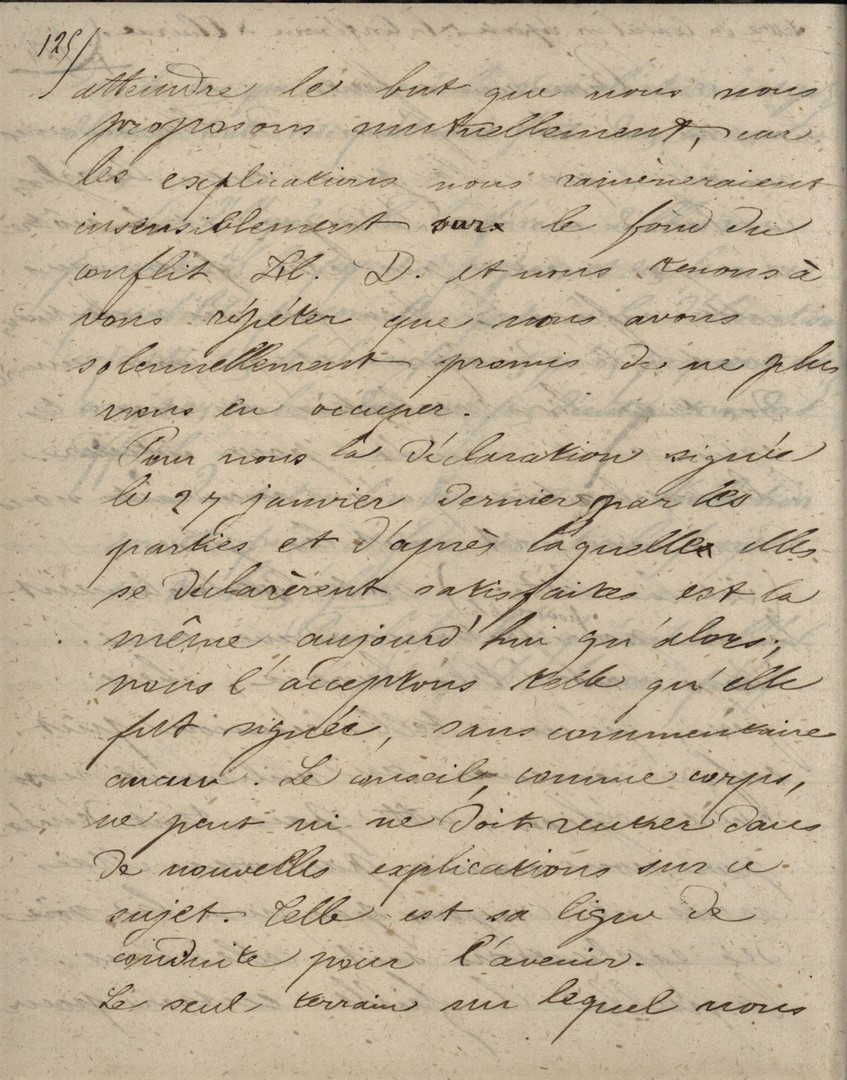 125/
atteindre le but que nous nous
proposons mutuellement, car
les explications nous ramèneraient
insensiblement sur le fond du
conflit H. D. et nous tenons à
vous répéter que nous avons
solennellement promis de ne plus
nous en occuper.
Pour nous la déclaration signée
le 27 janvier dernier par les
parties et d'après laquelle elles
se déclarèrent satisfaites est la
même aujourd'hui qu'alors;
nous l'acceptons telle qu'elle
fut signée, sans commentaire
aucun. Le conseil, comme corps,
ne peut ni ne doit rentrer dans
de nouvelles explications sur ce
sujet. Telle est sa ligne de
conduite pour l'avenir.
Le seul terrain sur lequel nous